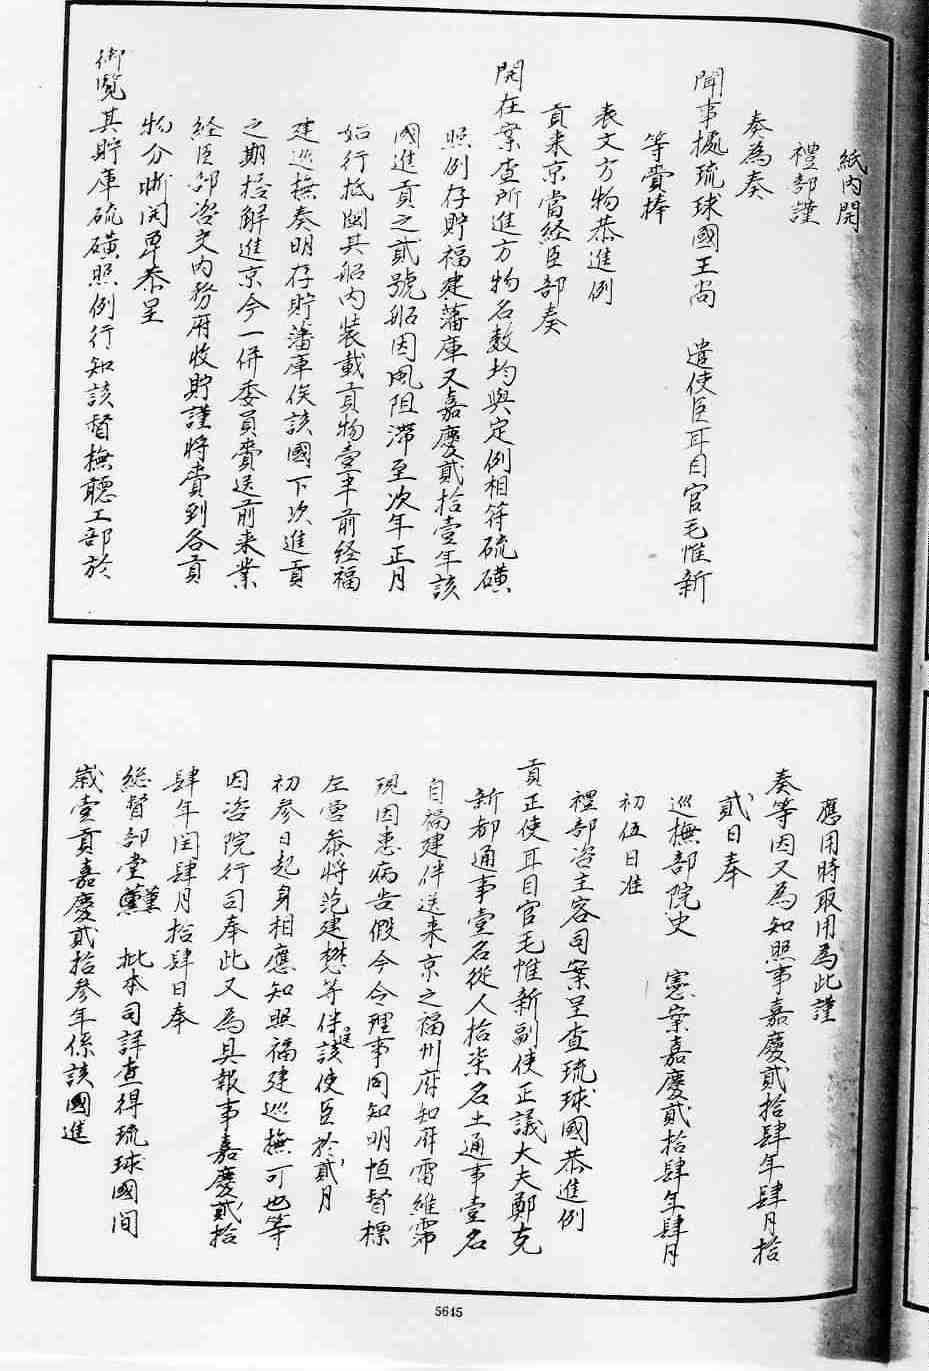 紙內開
禮部謹
奏為奏
聞事據琉球國王尚　遣使臣耳目官毛惟新
等賫捧
表文方物恭進例
貢来京當経臣部奏
開在案查所進方物名数均與定例相符硫磺
照例存貯福建藩庫又嘉慶貳拾壹年該
國進貢之貳號船因風阻滯至次年正月
始行抵閩其船內裝載貢物壹半前経福
建巡撫奏明存貯藩庫俟該國下次進貢
之期搭解進京今一併委員賫送前来業
経臣部咨交內務府收貯謹將賫到各貢
物分晰開單恭呈
御覧其貯庫硫磺照例行知該督撫聽工部於
應用時取用為此謹
奏等因又為知照事嘉慶貳拾肆年肆月拾
貳日奉
巡撫部院史　憲案嘉慶貳拾肆年肆月
初伍日准
禮部咨主客司案呈查琉球國恭進例
貢正使耳目官毛惟新副使正議大夫鄭克
新都通事壹名從人拾柒名土通事壹名
自福建伴送来京之福州府知府雷維霈
現因患病告假今令理事同知明恒督標
左營叅將范建懋等伴送該使臣於貳月
初参日起身相應知照福建巡撫可也等
因咨院行司奉此又為具報事嘉慶貳拾
肆年閏肆月拾肆日奉
総督部堂董　批本司詳查得琉球國間
歲壹貢嘉慶貳拾参年係該國進
5645